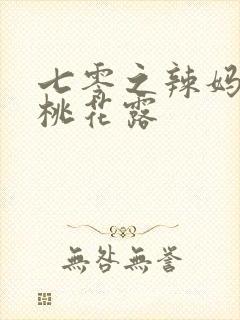 七零之辣妈
桃花露
無咎無誉